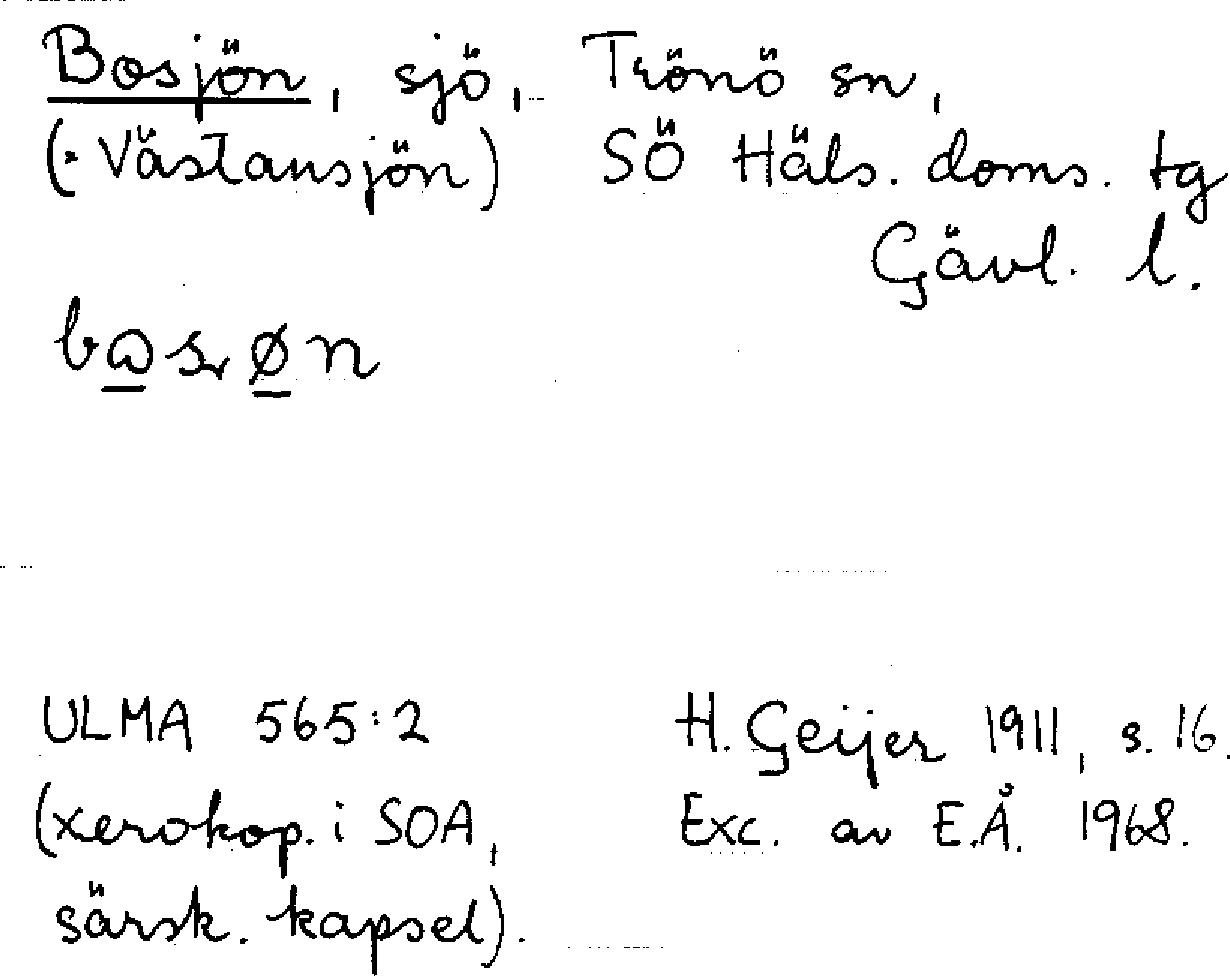 Bosjön, sjö, Trönö sn,
(: Västansjön) SÖ Häls. doms. tg
Gävl. l.
ULMA 565:2 H. Geijer 1911, s. 16.
(xerokop. i SOA, Exc. av E.Å. 1968.
särsk. kapsel).